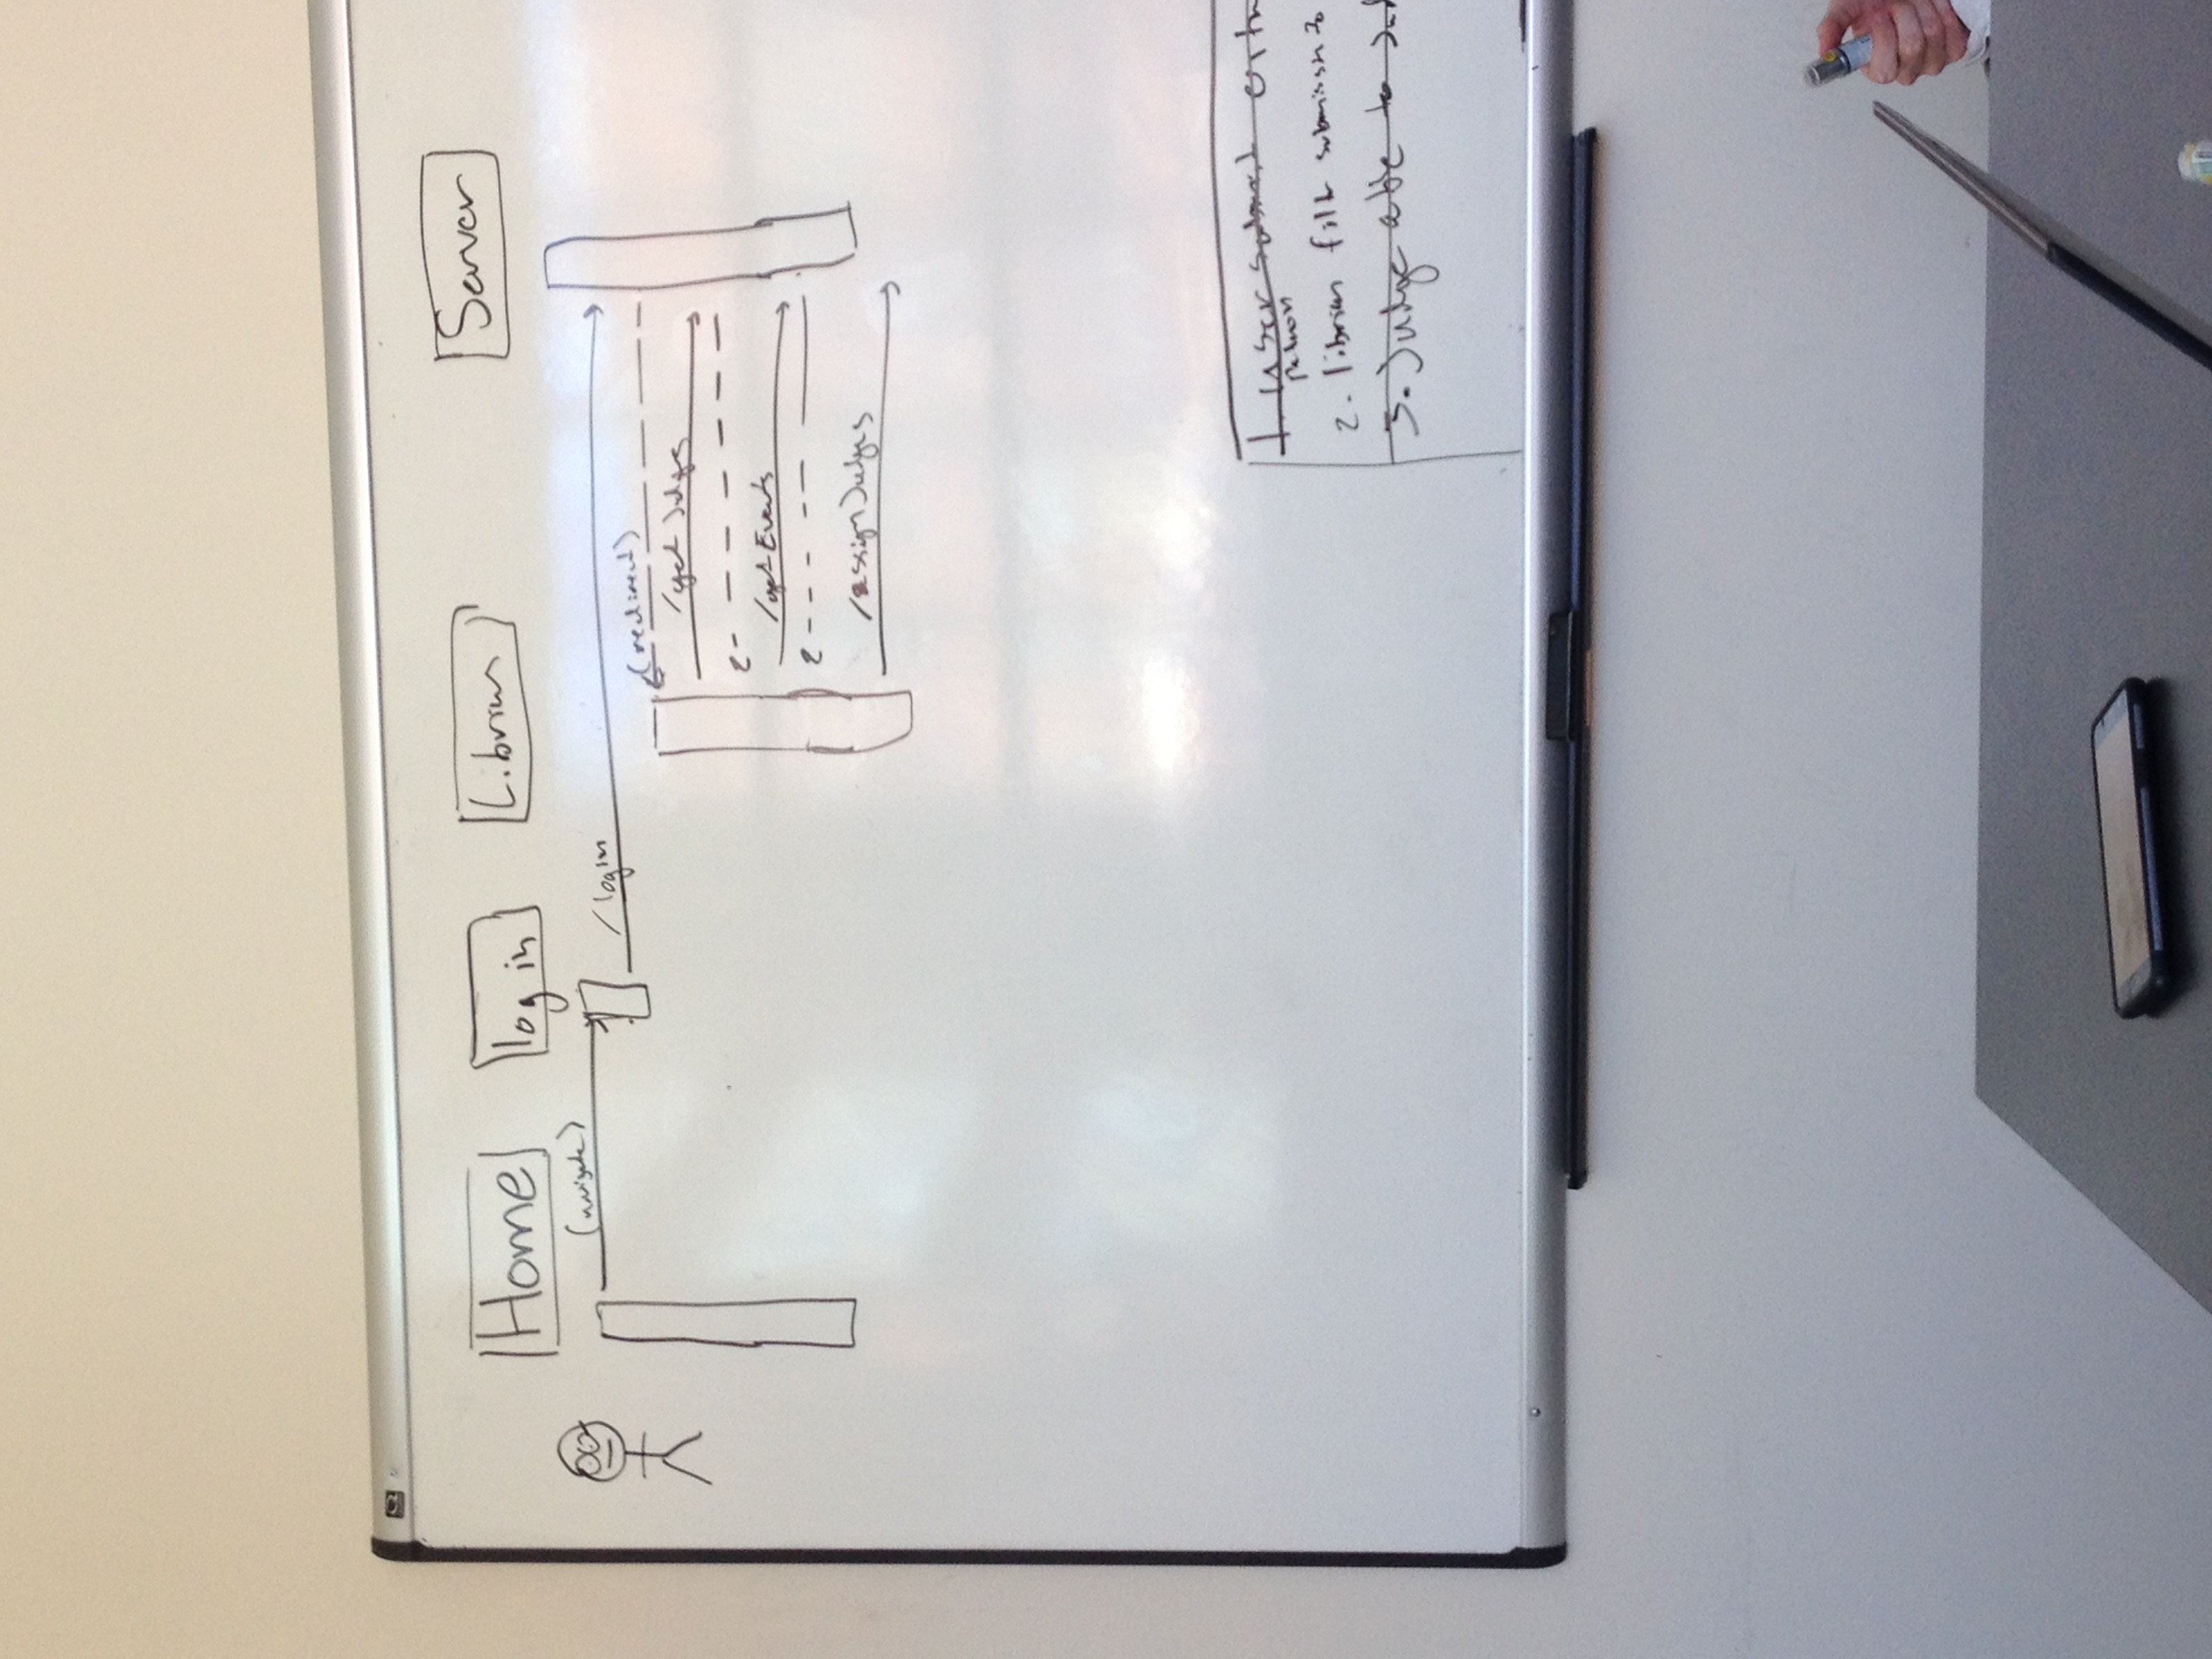 Home
log in
Librian
Server
(navigate)
/login
(redirect)
/get Judges
/get Events
/assign Judges
1. user submit
patron
2. librian filter submissions
3. Judge able to